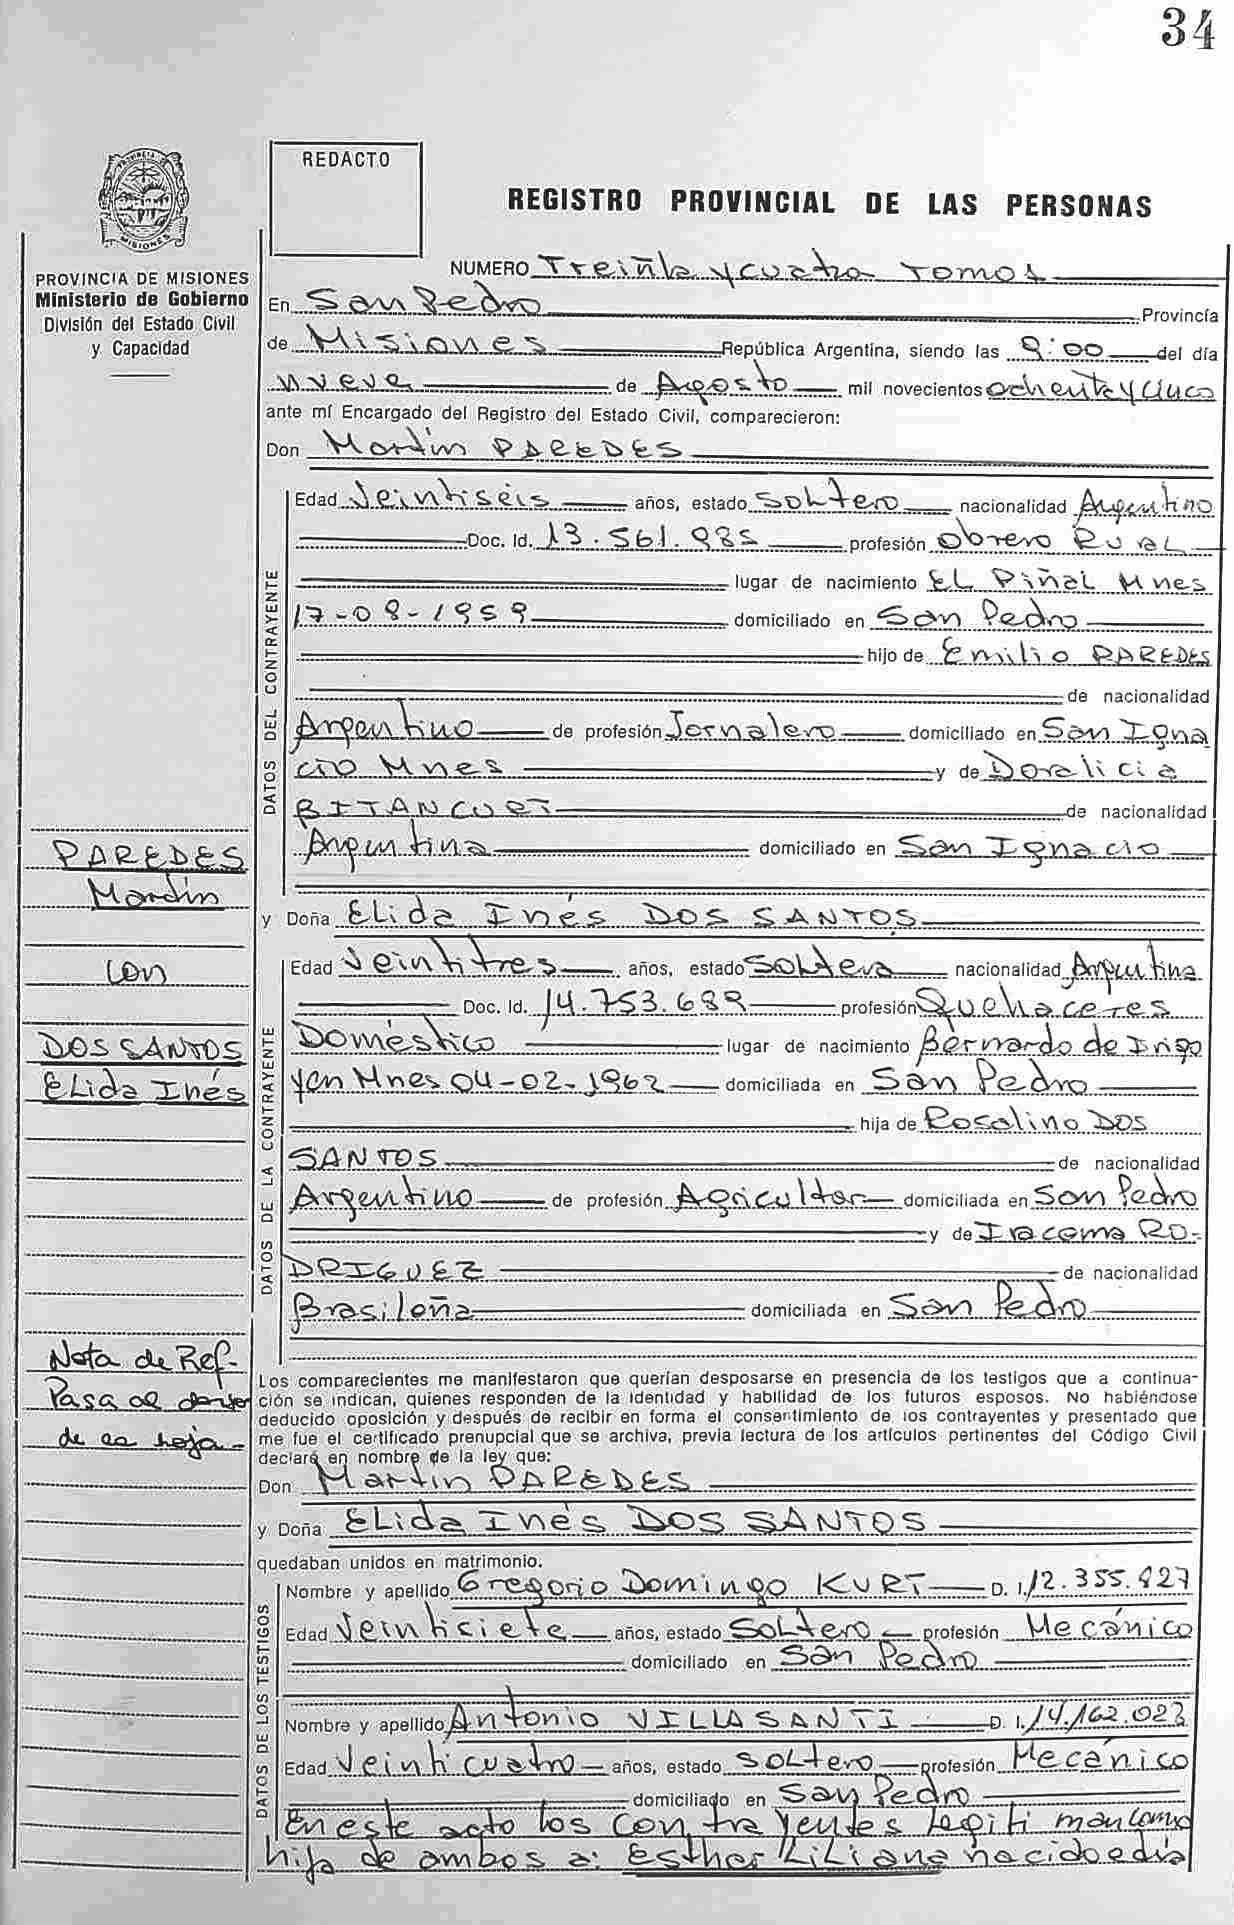 34
REDACTO
REGISTRO PROVINCIAL DE LAS PERSONAS
PROVINCIA DE MISIONES
Ministerio de Gobierno
División del Estado Civil
y Capacidad
NUMERO Treinta y cuatro Tomo 1
En San Pedro Provincia
de Misiones República Argentina, siendo las 9:00 del día
nueve de Agosto mil novecientos ochenta y cinco
ante mí Encargado del Registro del Estado Civil, comparecieron:
Don Martín PAREDES
DATOS DEL CONTRAYENTE
Edad Veintiseis años, estado Soltero nacionalidad Argentino
Doc. Id. 13.561.985 profesión Obrero Rural
lugar de nacimiento El Piñal Mnes
17-08-1959 domiciliado en San Pedro
hijo de Emilio PAREDES
de nacionalidad
Argentino de profesión Jornalero domiciliado en San Igna
cio Mnes y de Doralicia
BITANCURT de nacionalidad
Argentina domiciliado en San Ignacio
PAREDES
Martín
con
DOS SANTOS
Elida Inés
y Doña Elida Inés DOS SANTOS
DATOS DE LA CONTRAYENTE
Edad Veintitres años, estado Soltera nacionalidad Argentina
Doc. Id. 14.753.689 profesión Quehaceres
Doméstico lugar de nacimiento Bernardo de Irigo
yen Mnes 04-02-1962 domiciliada en San Pedro
hija de Rosalino DOS
SANTOS de nacionalidad
Argentino de profesión Agricultor domiciliada en San Pedro
y de Iracema RO-
DRIGUEZ de nacionalidad
Brasileña domiciliada en San Pedro
Nota de Ref-
Pasa al dorso
de la hoja -
Los comparecientes me manifestaron que querían desposarse en presencia de los testigos que a continua-
ción se indican, quienes responden de la identidad y habilidad de los futuros esposos. No habiéndose
deducido oposición y después de recibir en forma el consentimiento de los contrayentes y presentado que
me fue el certificado prenupcial que se archiva, previa lectura de los artículos pertinentes del Código Civil
declaré en nombre de la ley que:
Don Martin PAREDES
y Doña Elida Inés DOS SANTOS
quedaban unidos en matrimonio.
DATOS DE LOS TESTIGOS
Nombre y apellido Gregorio Domingo KURT D. I. 12.355.927
Edad Veintisiete años, estado Soltero profesión Mecánico
domiciliado en San Pedro
Nombre y apellido Antonio VILLASANTI D. I. 14.162.023
Edad Veinticuatro años, estado Soltero profesión Mecánico
domiciliado en San Pedro
En este acto los contrayentes legitiman como
hija de ambos a: Esther Liliana nacido el día